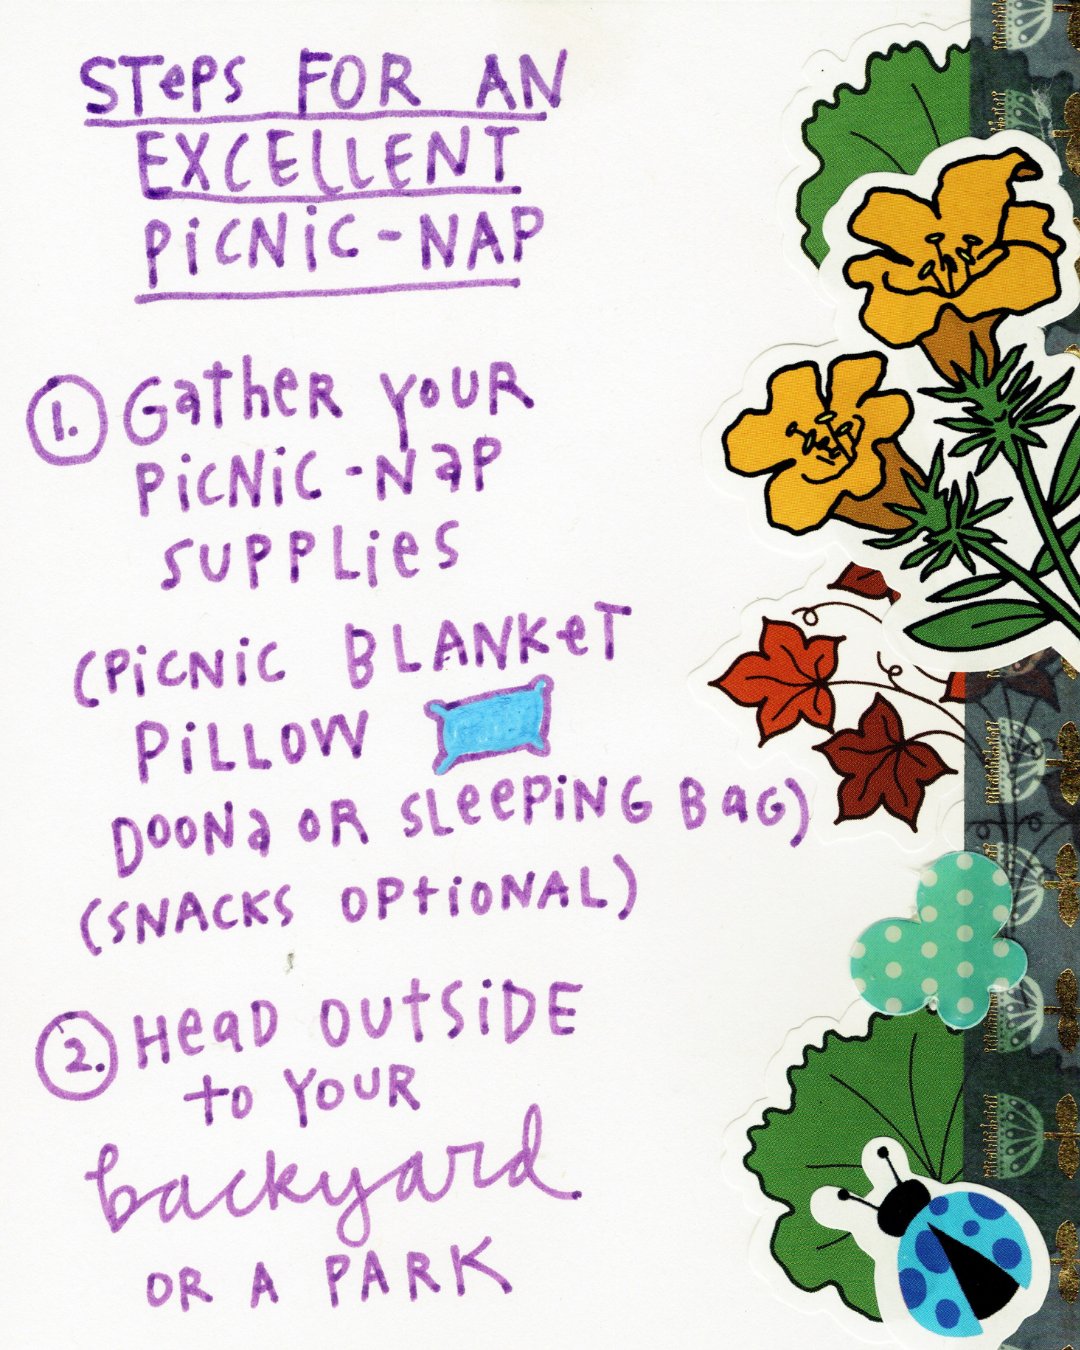 STePS FOR AN
EXCELLENT
PiCNiC-NAP
1. Gather YOUR
PiCNiC-NaP
SUPPLies
(PiCNiC BLANKeT
PiLLOW
DOONa OR SLeePiNG BaG)
(SNACKS OPtiONAL)
2. HeaD OUtSiDE
to YOUR
backyard
OR A PARK